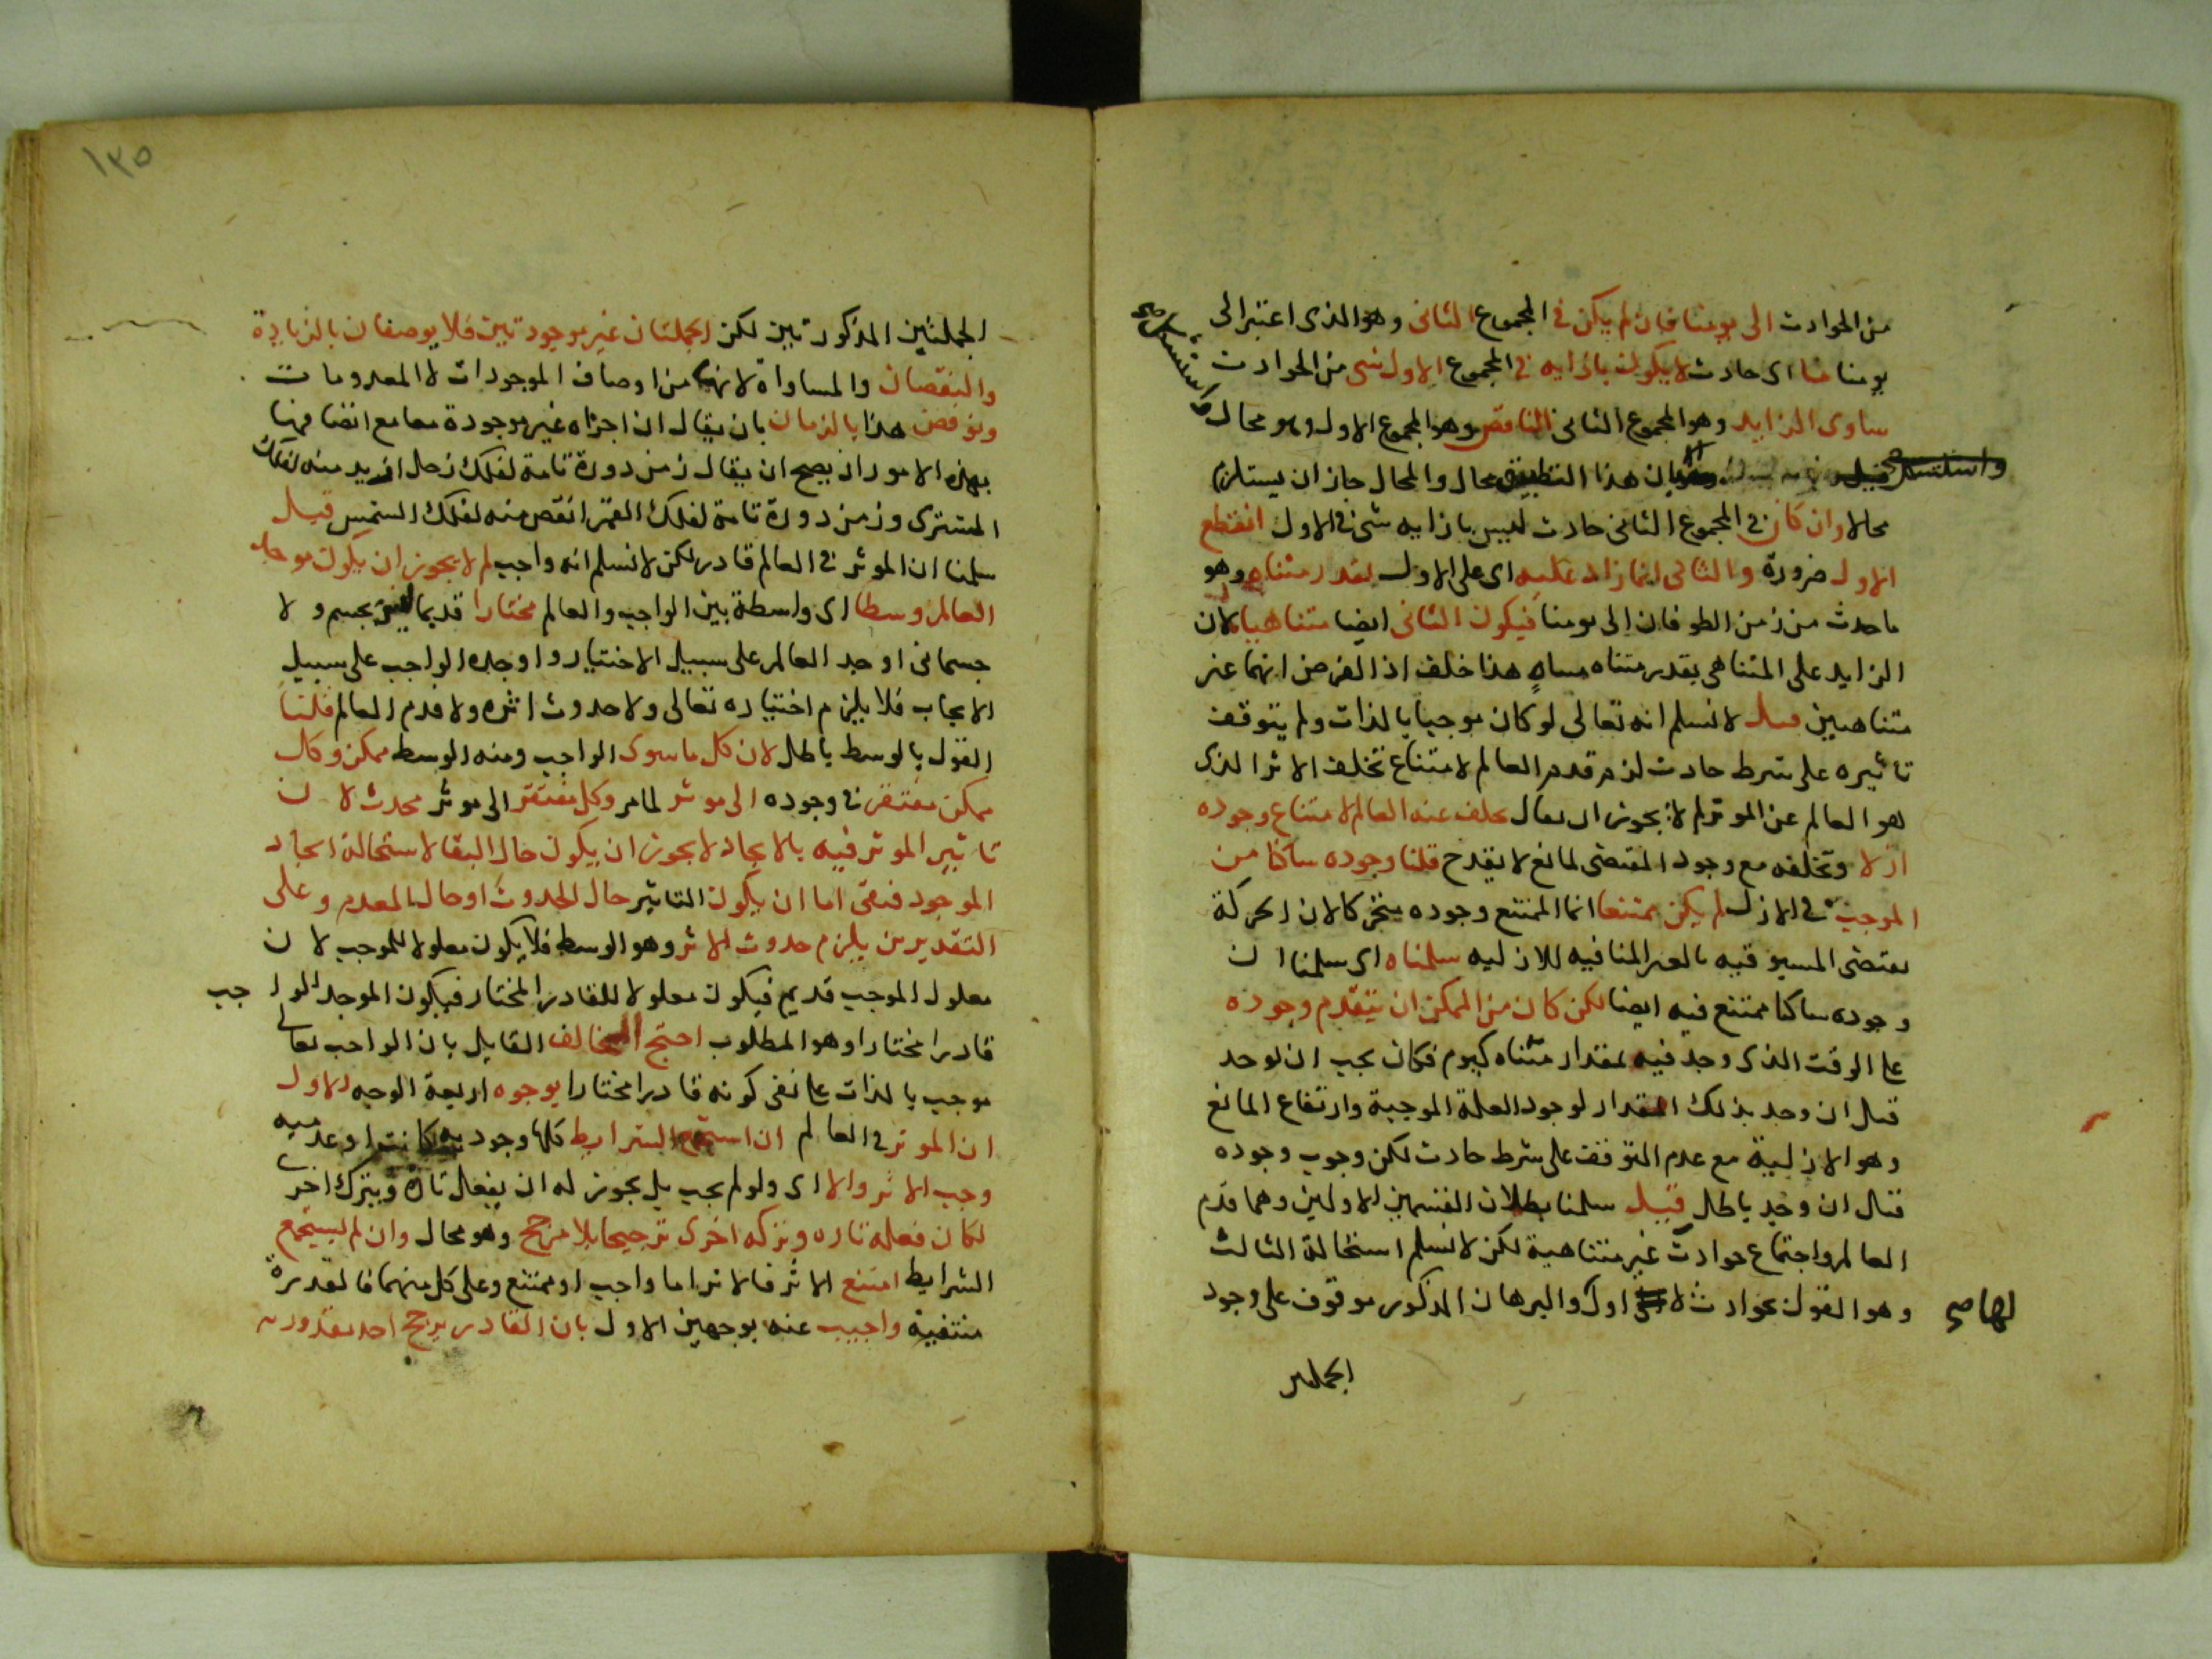 من الحوادث الى يومنا فان لم يكن فى المجموع الثانى وهو الذى اعتبر الى
يومنا هذا اى حادث لا يكون بازايه فى المجموع الاول شى من الحوادث
ساوى الزايد وهو المجموع الثانى الناقص وهو المجموع الاول وهو محال
واستشكل صح
بان هذا التطبيق محال والمحال جاز ان يستلزم
محالا وان كان فى المجموع الثانى حادث ليس بازايه شى فى الاول انقطع
الاول ضرورة والثانى انما زاد عليه اى على الاول بقدر متناهى وهو
ما حدث من زمن الطوفان الى يومنا فيكون الثانى ايضا متناهيا لان
الزايد على المتناهى بقدر متناه متناه هذا خلف اذ الفرض انهما غير
متناهيين قيل لا نسلم انه تعالى لو كان موجبا بالذات ولم يتوقف
تاثيره على شرط حادث لزم قدم العالم لامتناع تخلف الاثر الذى
هو العالم عن الموثر لم لا يجوز ان يقال تخلف عنه العالم لامتناع وجوده
ازلا وتخلفه مع وجود المقتضى لمانع لا يقدح قلنا وجوده ساكنا من
الموجب فى الازل لم يكن ممتنعا انما الممتنع وجوده متحركا لان الحركة
تقتضى المسبوقيه بالغير المنافيه للازليه سلمناه اى سلمنا ان
وجوده ساكنا ممتنع فيه ايضا لكن كان من الممكن ان يتقدم وجوده
على الوقت الذى وجد فيه بمقدار متناه كيوم فكان يجب ان يوجد
قبل ان وجد بذلك المقدار لوجود العلة الموجبة وارتفاع المانع
وهو الازلية مع عدم التوقف على شرط حادث لكن وجوب وجوده
قبل ان وجد باطل قيل سلمنا بطلان القسمين الاولين وهما قدم
العالم واجتماع حوادث غير متناهية لكن لا نسلم استحالة الثالث
وهو القول بحوادث لا اول والبرهان المذكور موقوف على وجود
لها صح
الجملتين
١٣٥
الجملتين المذكورتين لكن الجملتان غير موجودتين فلا يوصفان بالزيادة
والنقصان والمساواة لانها من اوصاف الموجودات لا المعدومات
ونوقض هذا بالزمان بان يقال ان اجزاه غير موجودة معا مع اتصافها
بهذه الامور اذ يصح ان يقال زمن دورة تامة لفلك زحل ازيد منه لفلك
المشترى وزمن دورة تامة لفلك القمر انقص منه لفلك الشمس قيل
سلمنا ان الموثر فى العالم قادر لكن لا نسلم انه واجب لم لا يجوز ان يكون موجد
العالم وسطا اى واسطة بين الواجب والعالم مختارا قديما ليس بجسم ولا
جسمانى اوجد العالم على سبيل الاختيار واوجده الواجب على سبيل
الايجاب فلا يلزم اختياره تعالى ولا حدوث اثره ولا قدم العالم قلنا
القول بالوسط باطل لان كل ما سوى الواجب ومنه الوسط ممكن وكل
ممكن مفتقر فى وجوده الى موثر لما مر وكل مفتقر الى موثر محدث لان
تاثير الموثر فيه بالايجاد لا يجوز ان يكون حال البقا لاستحالة ايجاد
الموجود فبقى اما ان يكون التاثير حال الحدوث او حال العدم وعلى
التقديرين يلزم حدوث الاثر وهو الوسط فلا يكون معلولا للموجب لان
معلول الموجب قديم فيكون معلولا للقادر المختار فيكون الموجد الواجب
قادرا مختارا وهو المطلوب احتج المخالف القايل بان الواجب تعالى
موجب بالذات على نفى كونه قادرا مختارا بوجوه اربعة الوجه الاول
ان الموثر فى العالم ان استجمع الشرايط كلها وجوديه كانت او عدميه
وجب الاثر والا اى ولو لم يجب بل يجوز له ان يفعل تارة ويترك اخرى
لكان فعله تاره وتركه اخرى ترجيحا بلا مرجح وهو محال وان لم يستجمع
الشرايط امتنع الاثر فالاثر اما واجب او ممتنع وعلى كل منهما فالقدرة
منتفية واجيب عنه بوجهين الاول بان القادر يرجح احد مقدوريه